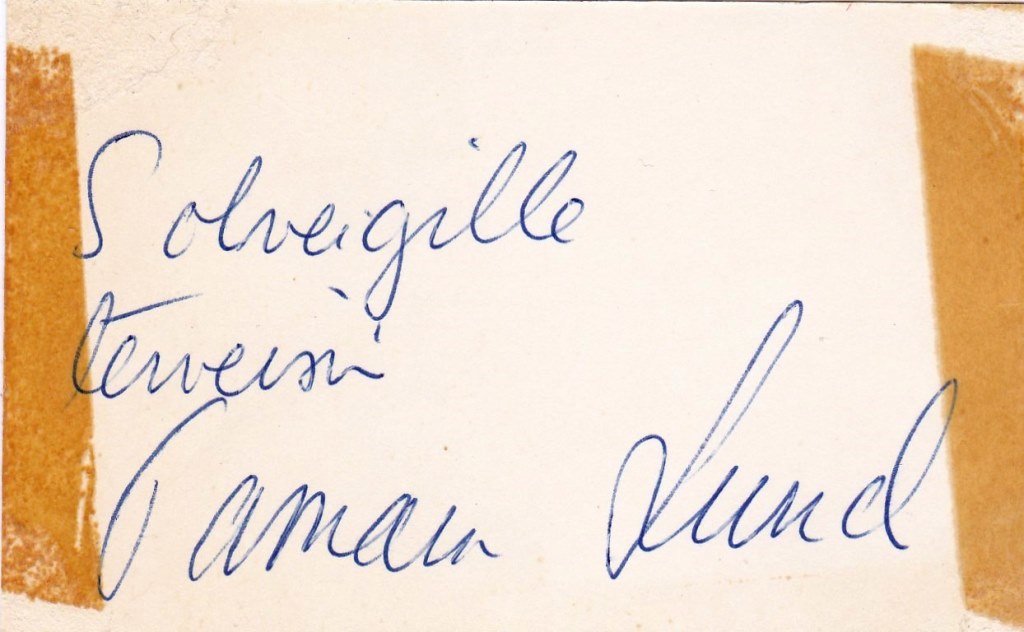 Solveigille
terveisin
Tamara Lund